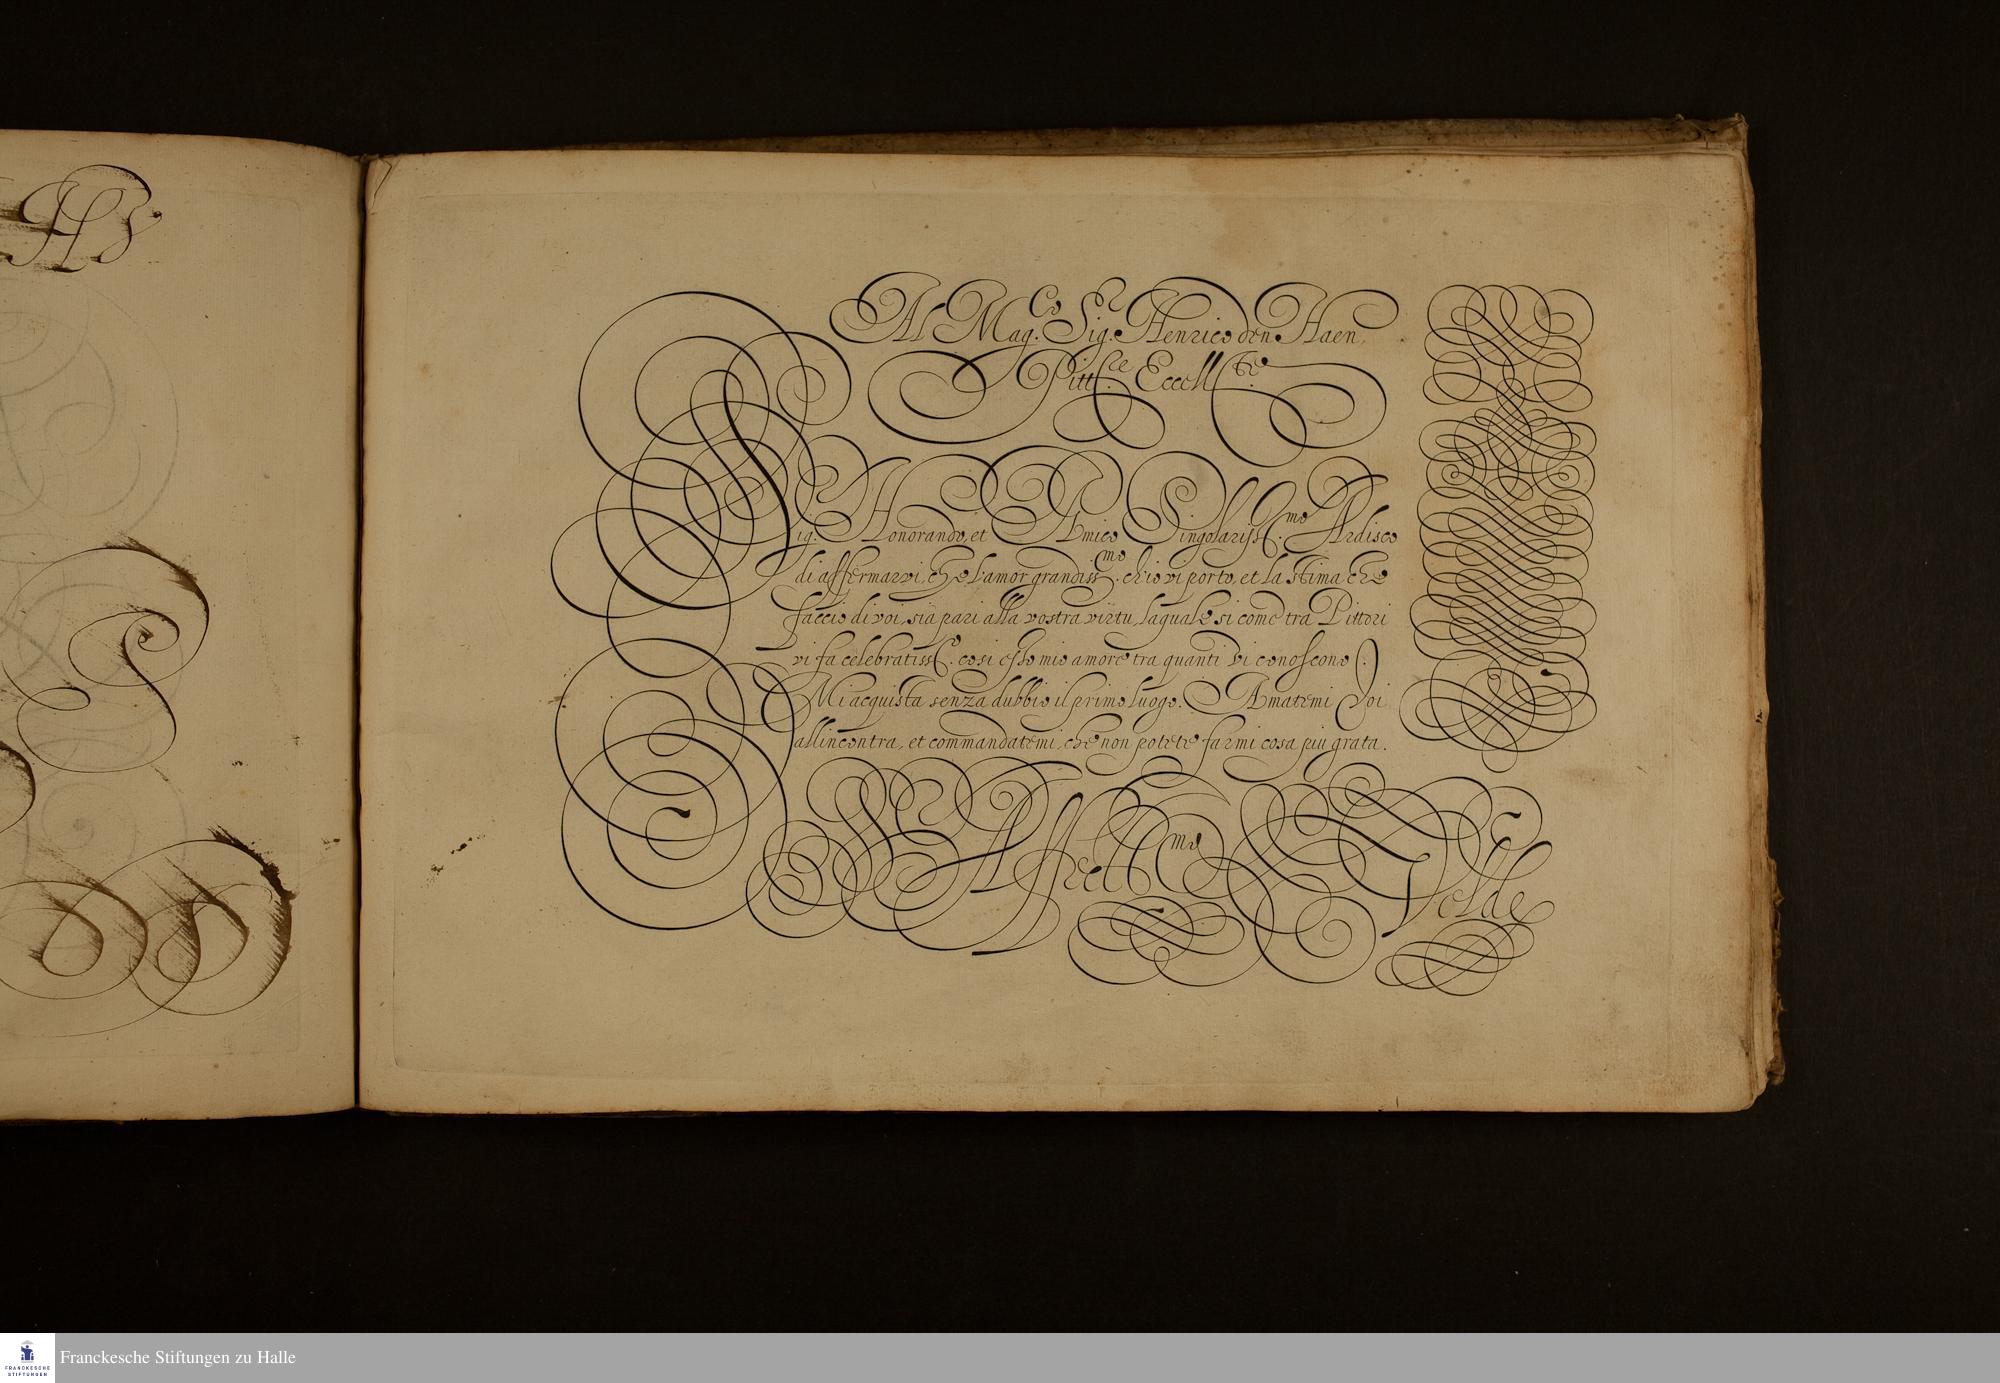 Al Mag.co Sig.r Henrico den Haen,
Pitt.re Eccell.te
Sig.r Honorando, et Amico Singolariss.mo Ardisco
di affermarvi, che l'amor grandiss.mo ch'io vi porto, et la stima che
faccio di voi, sia pari alla vostra virtu, laquale si come tra Pittori
vi fa celebratiss.o cosi esso mio amore tra quanti vi conoscono.
Mi acquista senza dubbio il primo luogo. Amatemi Voi
allincontra, et commandatemi, che non potete farmi cosa piu grata.
V. Affett.mo Velde
Franckesche Stiftungen zu Halle
FRANCKESCHE
STIFTUNGEN